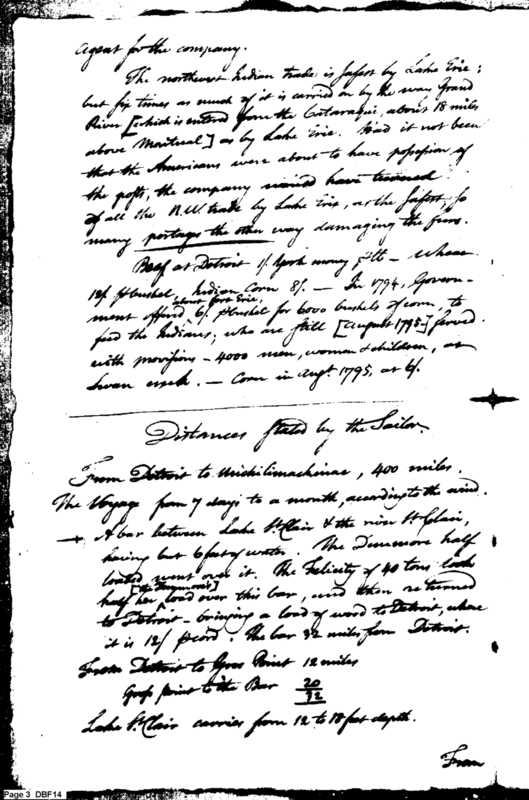 agent for the company.
The northwest Indian trade is safest by Lake Erie;
but six times as much of it is carried on by the way Grand
River [which is entered from the Cataraqui, about 18 miles
above Montreal] as by Lake Erie. Had it not been
that the Americans were about to have possession of
the posts, the company would have
of all the N.W. trade by Lake Erie, as the safest, so
many portages the other way damaging the furs.
Beef at Detroit 1/. York money ℔ – Wheat
12/. bushel, Indian Corn 8/. — In 1794, Govern-
about fort Erie,
ment offered 6/. bushel for 6000 bushels of corn, to
feed the Indians, who are still [August 1795] served
with provisions – 4000 men, women & children, at
Swan creek. — Corn in Augt. 1795, at 6/.
Distances stated by the Sailor.
From Detroit to Michilimackinac, 400 miles.
The Voyage from 7 days to a month, according to the wind.
A bar between Lake St. Clair & the river St. Clair,
having but 6 feet of water. The Dunmore half
loaded went over it. The Felicity of 40 tons took
[the Dunmore's]
half her load over this bar, and then returned
to Detroit – bringing a load of wood to Detroit, where
it is 12/. cord. The bar 32 miles from Detroit.
From Detroit to Gros Point 12 miles
Gross point to the Bar 20
32
Lake St. Clair carries from 12 to 18 feet depth.
From
Page 3 DBF14